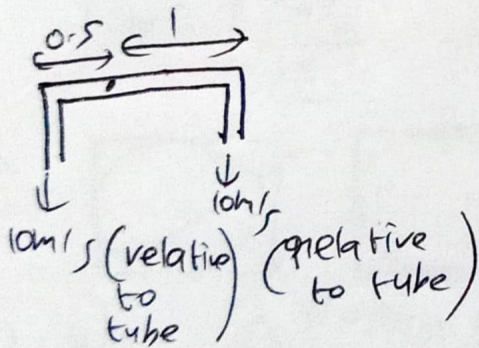 0.5 1
10m/s (relative to tube)
10m/s (relative to tube)